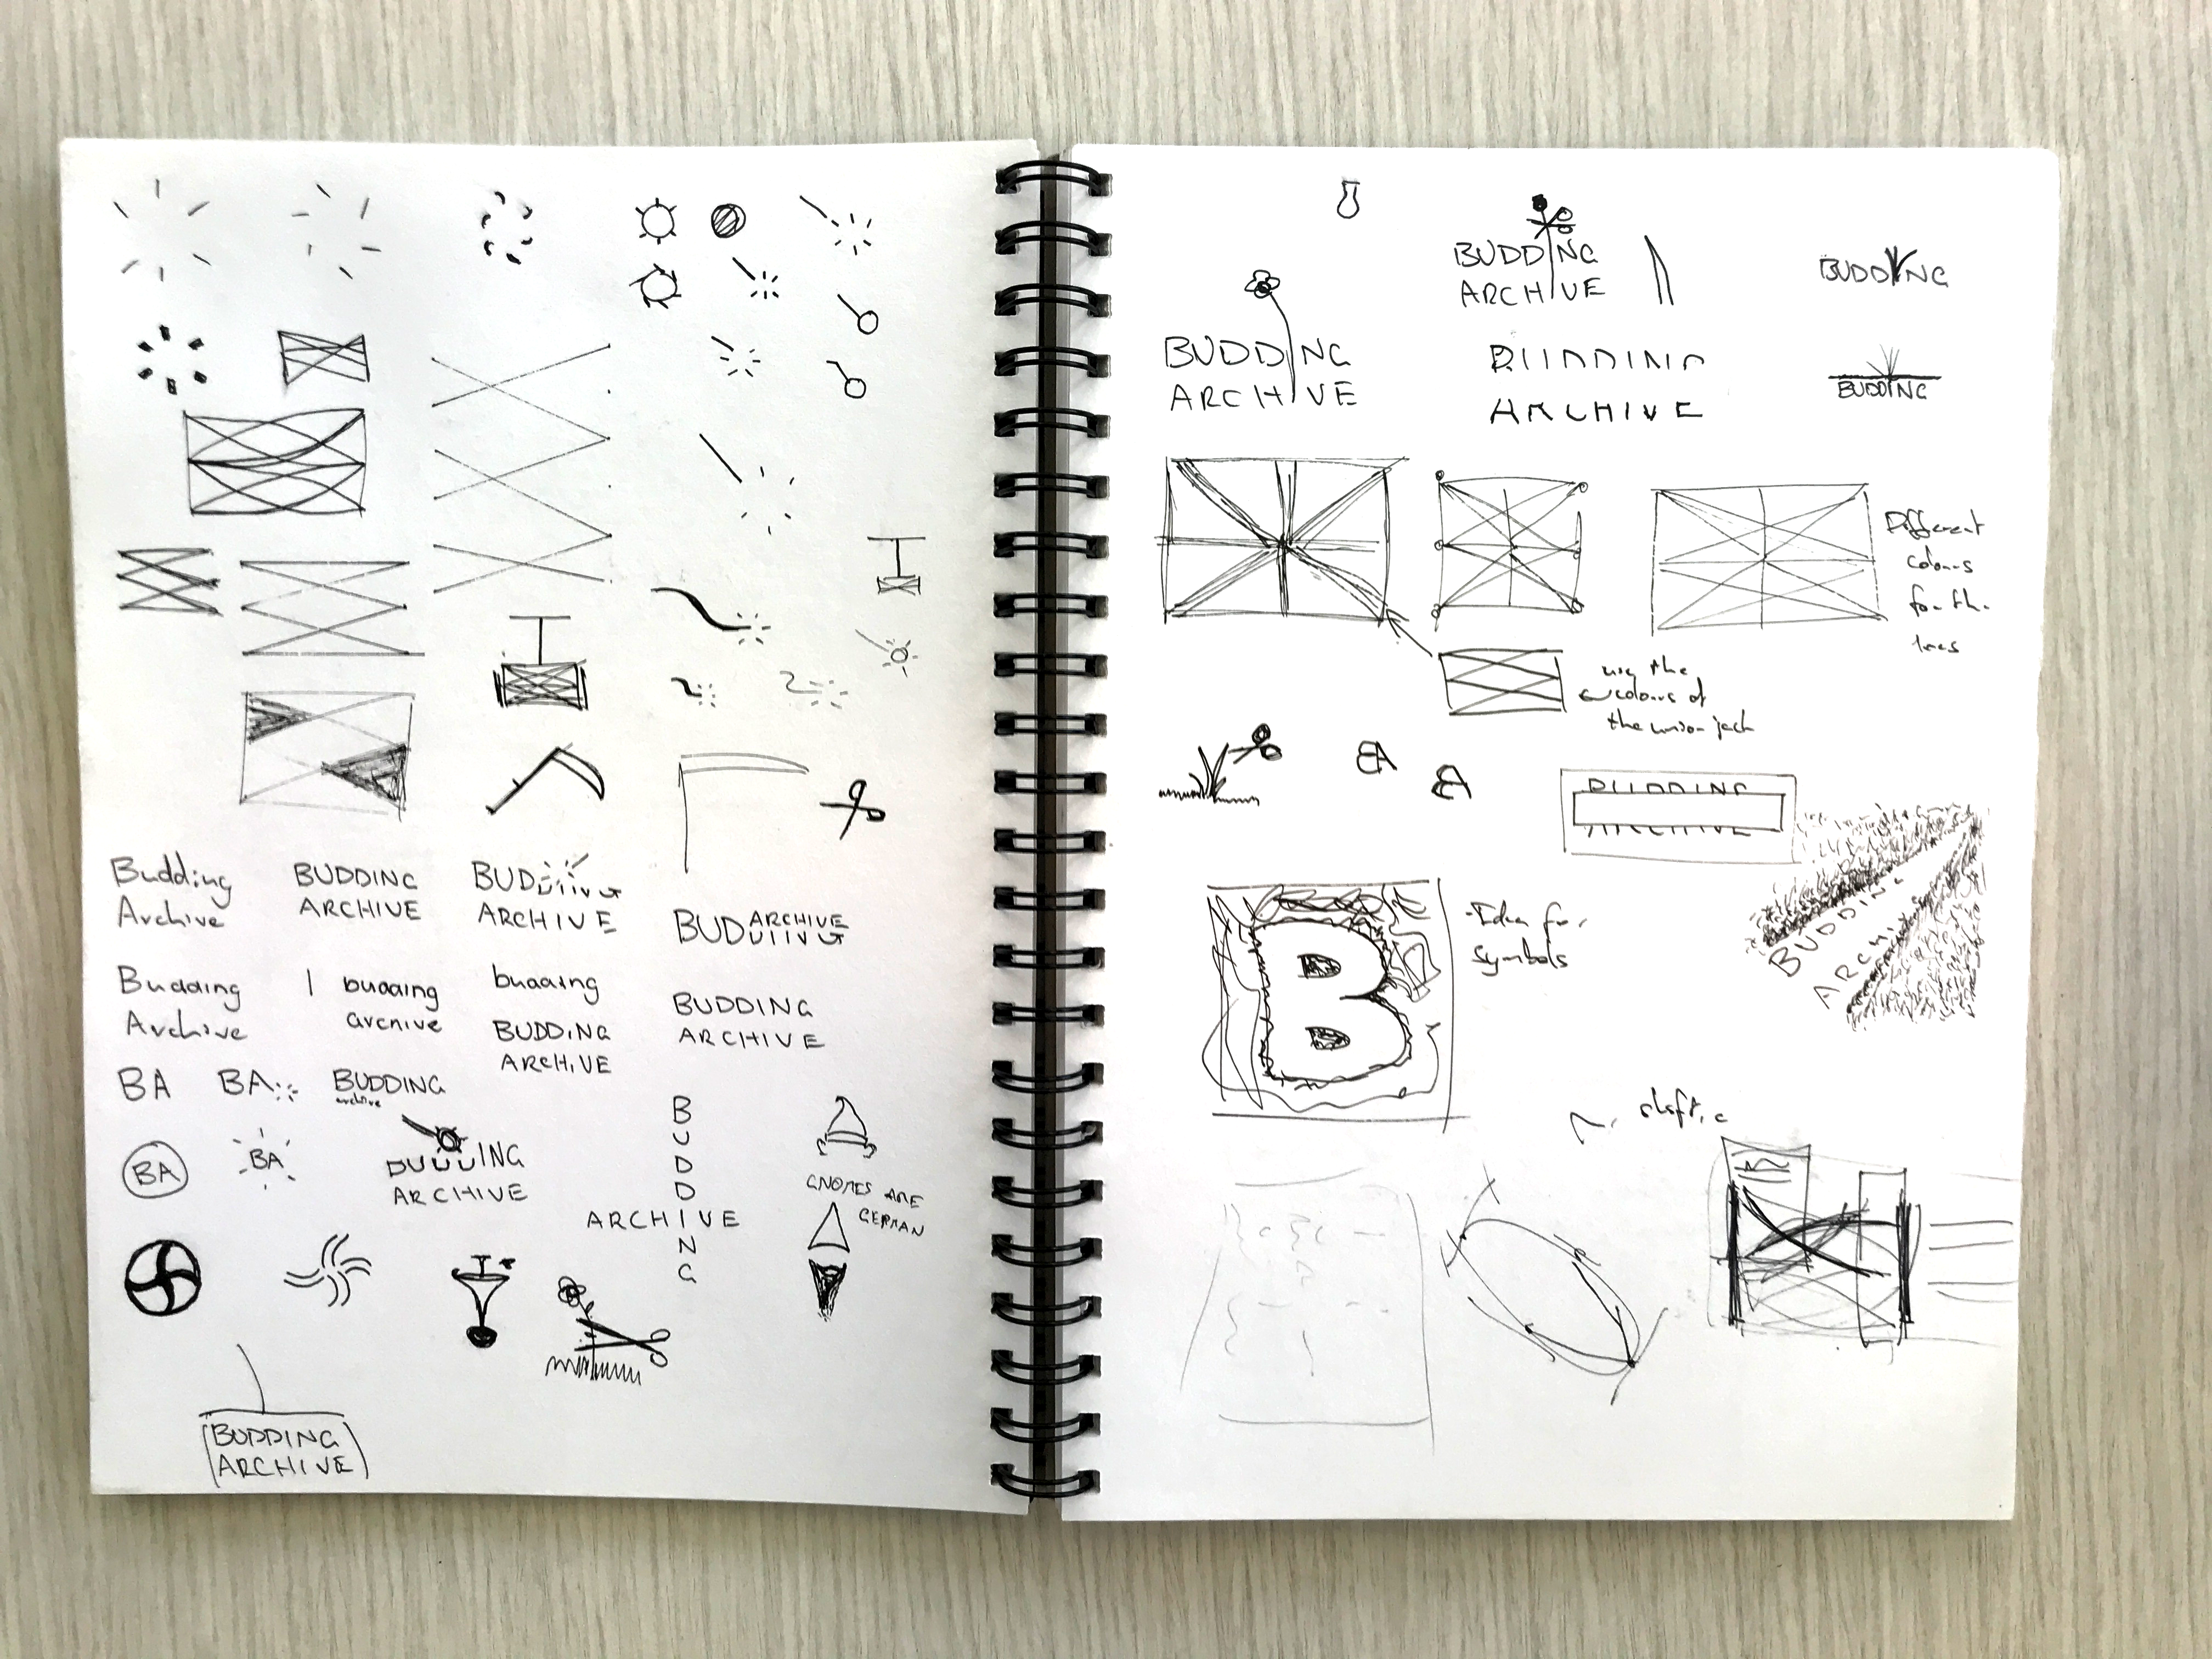 Budding
Archive
BUDDING
ARCHIVE
BUDDING
ARCHIVE
BUDDING
ARCHIVE
Budding
Archive
budding
archive
budding
BUDDING
ARCHIVE
BUDDING
ARCHIVE
BA
BA
BUDDING
archive
BA
BA
BUDDING
ARCHIVE
BUDDING
ARCHIVE
GNOMES ARE
GERMAN
BUDDING
ARCHIVE
BUDDING
ARCHIVE
BUDDING
BUDDING
ARCHIVE
BUDDING
ARCHIVE
BUDDING
Different
colours
for the
lines
use the
colours of
the union jack
BA
BA
BUDDING
ARCHIVE
BUDDING
ARCHIVE
B
-Idea for
symbols